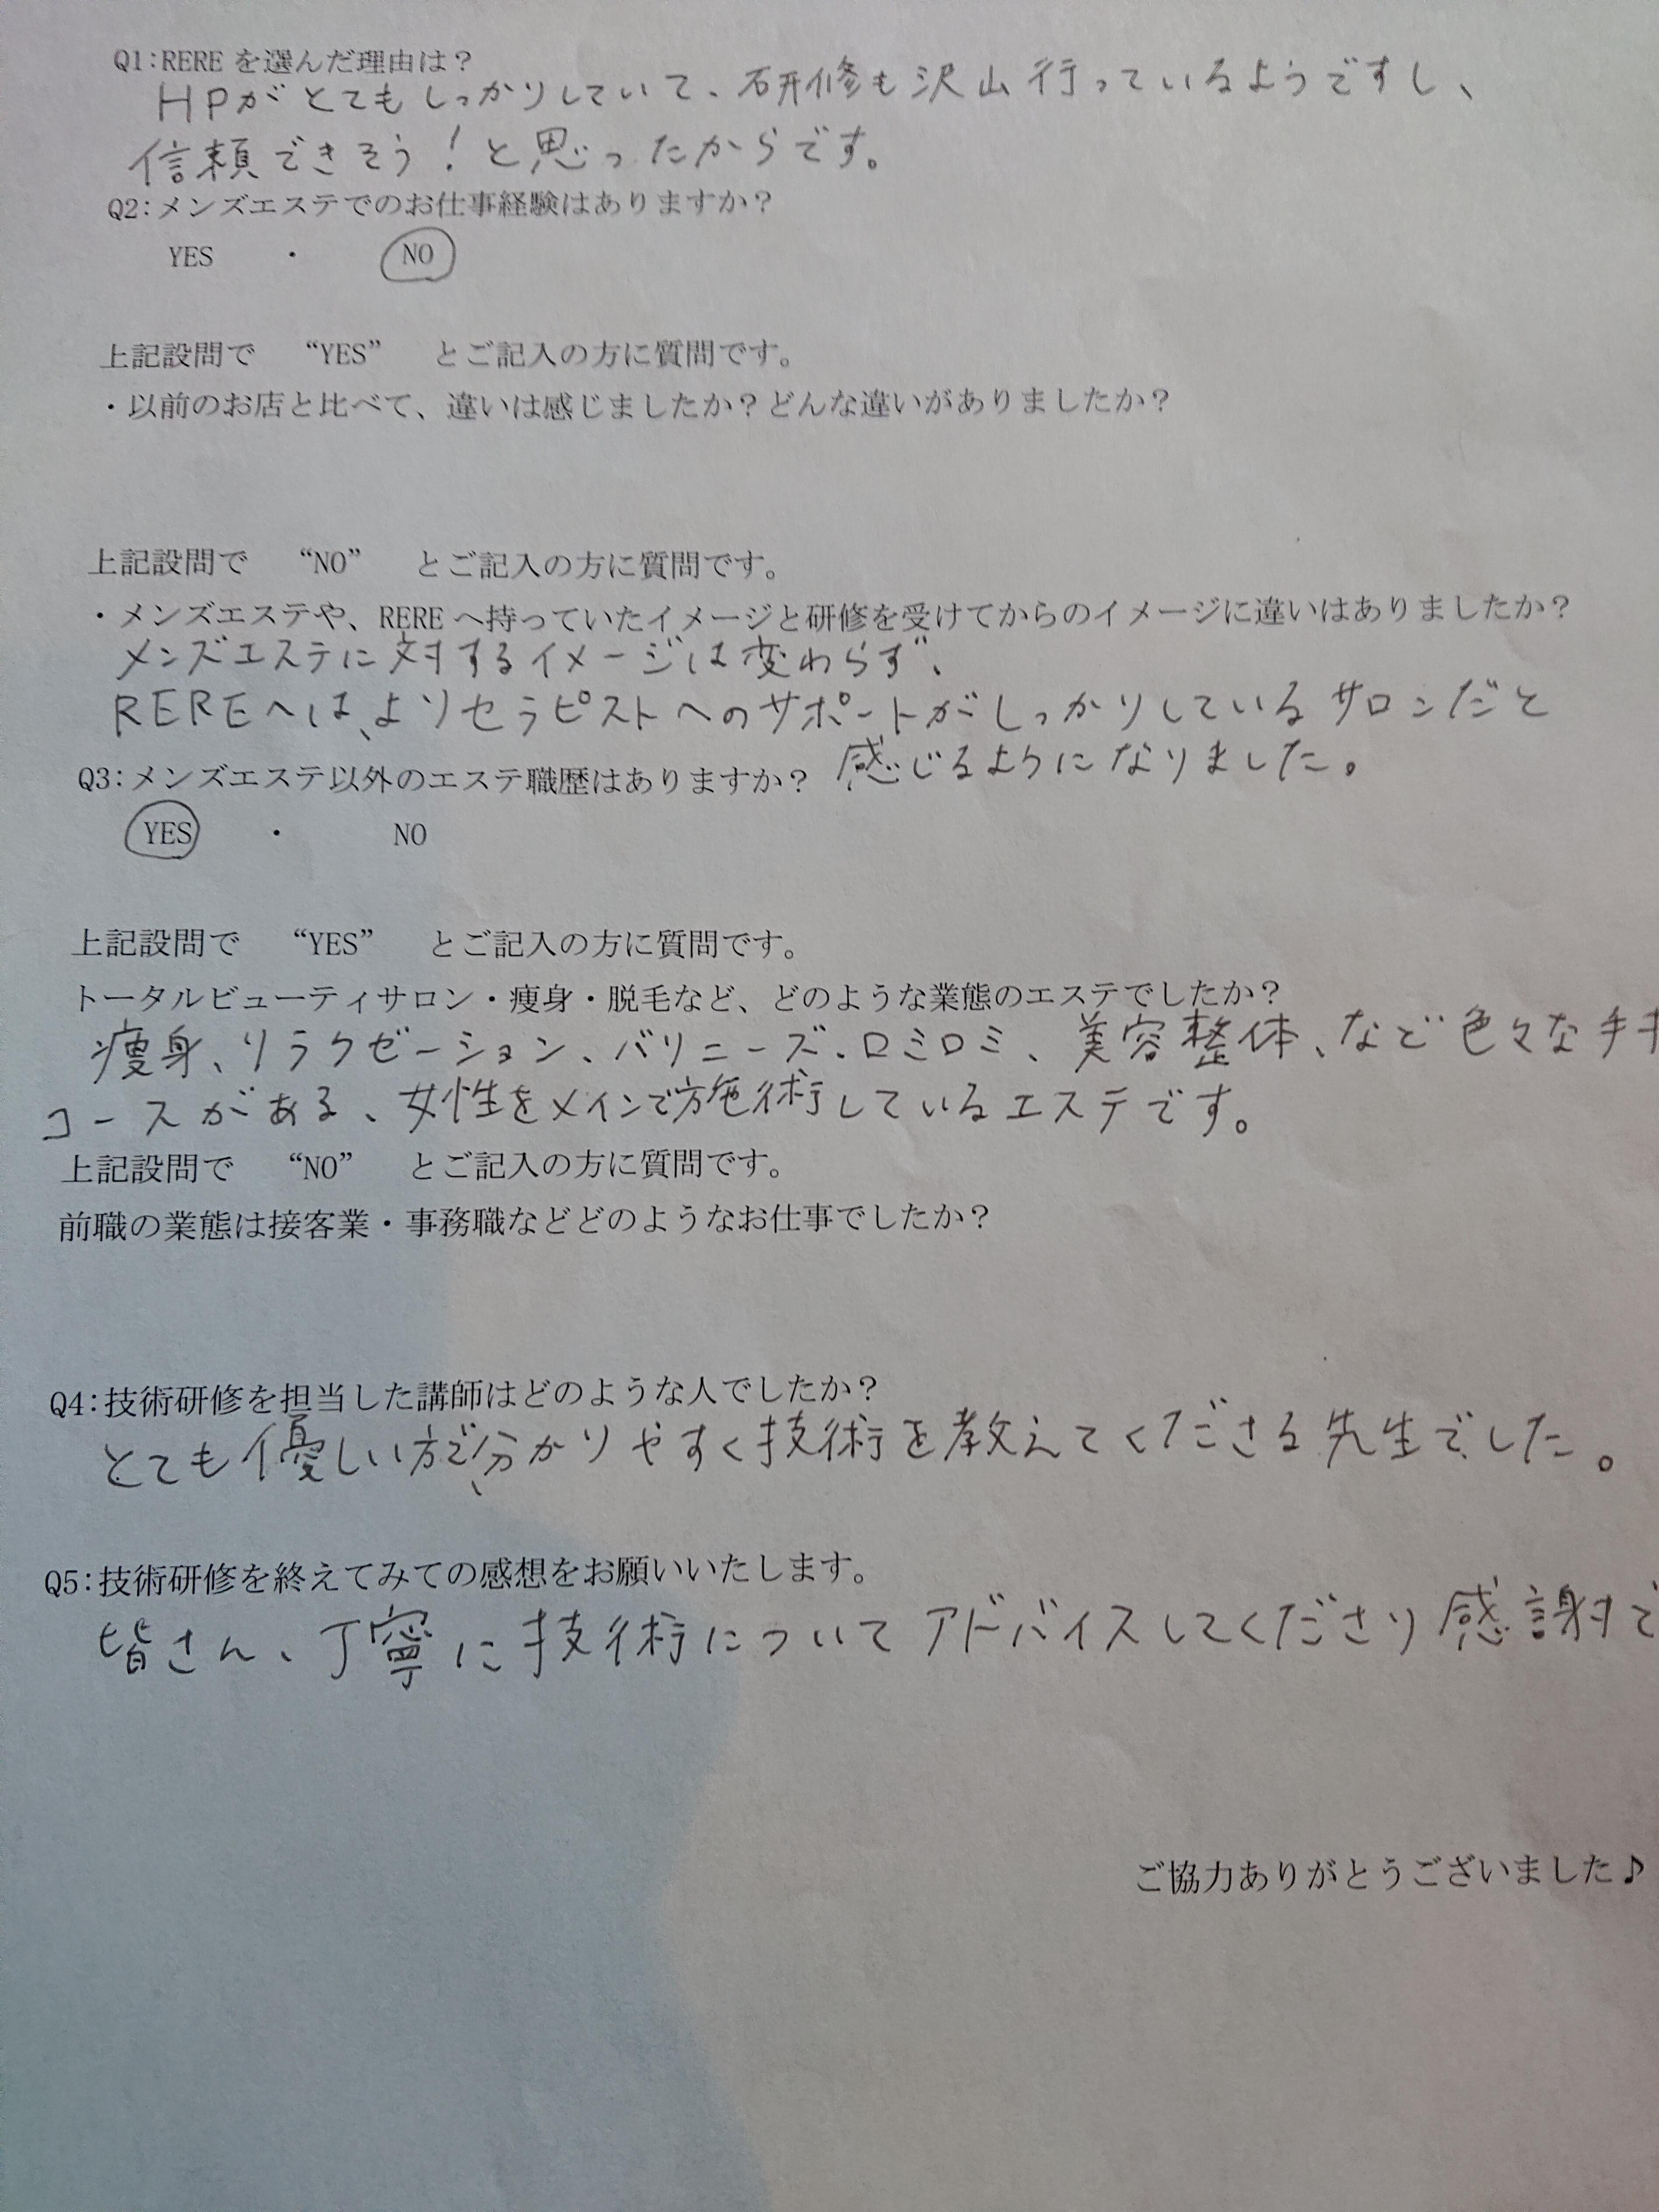 Q1:RERE を選んだ理由は？
HPがとてもしっかりしていて、研修も沢山行っているようですし、
信頼できそう！と思ったからです。
Q2:メンズエステでのお仕事経験はありますか？
YES ・ NO
上記設問で “YES” とご記入の方に質問です。
・以前のお店と比べて、違いは感じましたか？どんな違いがありましたか？
上記設問で “NO” とご記入の方に質問です。
・メンズエステや、RERE へ持っていたイメージと研修を受けてからのイメージに違いはありましたか？
メンズエステに対するイメージは変わらず、
REREへは、よりセラピストへのサポートがしっかりしているサロンだと
感じるようになりました。
Q3:メンズエステ以外のエステ職歴はありますか？
YES ・ NO
上記設問で “YES” とご記入の方に質問です。
トータルビューティサロン・痩身・脱毛など、どのような業態のエステでしたか？
痩身、リラクゼーション、バリニーズ、ロミロミ、美容整体、など色々な手
コースがある、女性をメインで施術しているエステです。
上記設問で “NO” とご記入の方に質問です。
前職の業態は接客業・事務職などどのようなお仕事でしたか？
Q4:技術研修を担当した講師はどのような人でしたか？
とても優しい方で、分かりやすく技術を教えてくださる先生でした。
Q5:技術研修を終えてみての感想をお願いいたします。
皆さん、丁寧に技術についてアドバイスしてくださり感謝で
ご協力ありがとうございました♪